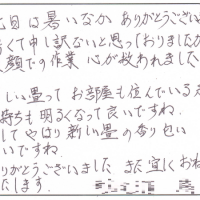 先日は暑いなか ありがとうござい
くて申し訳ないと思っておりましたが
顔での作業 心が救われました
しい畳って お部屋も住んでいる
持ちも 明るくなって良いですね
してやはり新しい畳の香り 匂い
いいですね
りがとうございました また宜しくお
たします